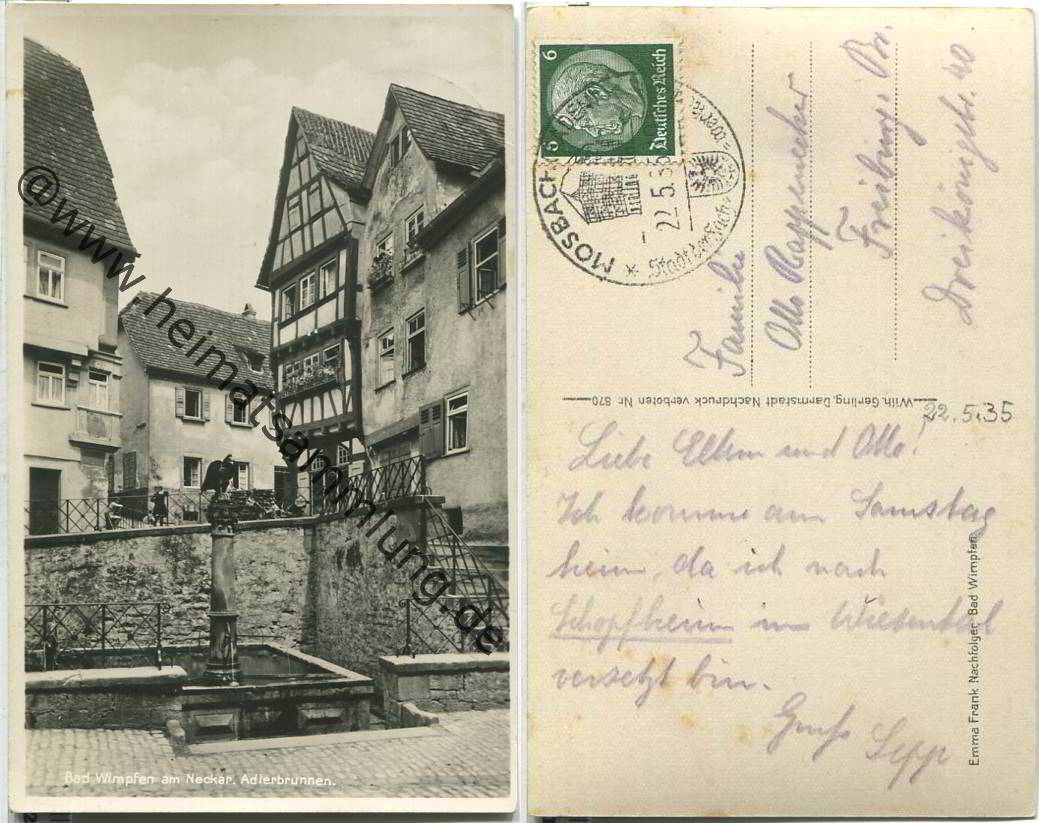 @www.heimatsammlung.de
Bad Wimpfen am Neckar. Adlerbrunnen.
6
6
Deutsches Reich
MOSBACH
22.5.35
Stadt der Fach-
Familie
Otto Rappenecker
Freiburg i. Br.
Dreikönigstr. 40
Wilh. Gerling, Darmstadt Nachdruck verboten Nr. 870
22.5.35
Liebe Eltern und Otto!
Ich komme am Samstag
heim, da ich nach
Schopfheim im Wiesental
versetzt bin.
Gruß
Sepp
Emma Frank Nachfolger, Bad Wimpfen